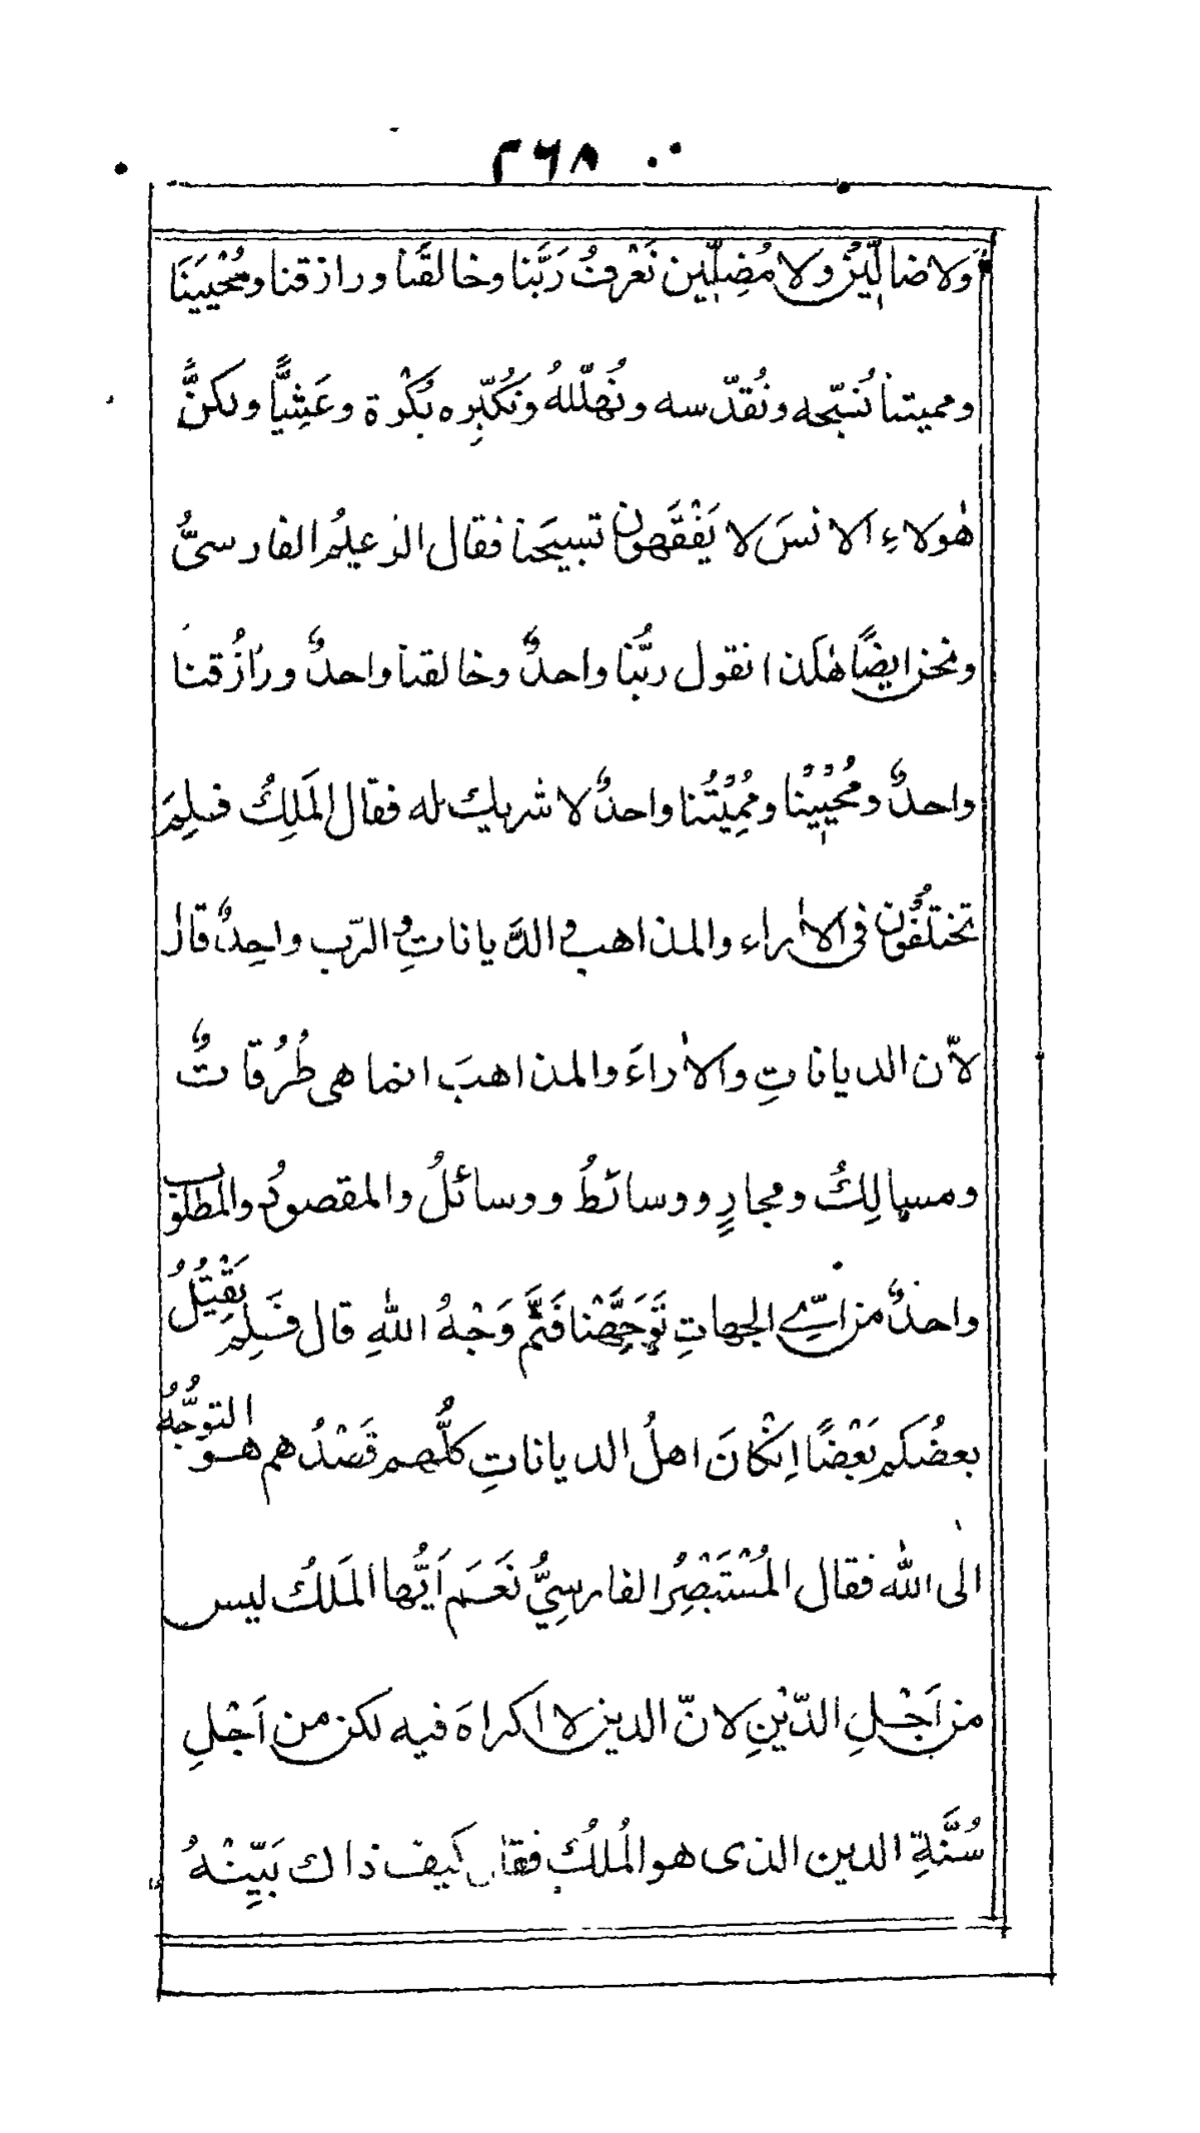 ٢٦٨
ولا ضالّين ولا مُضِلّين نَعْرفُ رَبَّنا وخالقَنا ورازقنا ومُحْيِيَنَا
ومميتنا نُسَبّحه ونُقدّسه ونُهلّلهُ ونُكَبّره بُكْرة وعَشِيًّا ولكنَّ
هٰولاءِ الانسَ لا يَفْقَهون تسبيحَنا فقال الزعيمُ الفارسىُّ
ونحن ايضًا هٰكذا نقول ربُّنا واحدٌ وخالقنا واحدٌ ورازُقنا
واحدٌ ومُحْيِيْنُا ومُمِيْتُنا واحدٌ لا شريك له فقال المَلِكُ فلِمَ
تختلفُون فى الاٰراء والمذاهب والدَّياناتِ والرّب واحِدٌ قال
لاّن الدياناتِ والاٰراءَ والمذاهبَ انما هى طُرُقاتٌ
ومسالِكُ ومجارٍ ووسائطُ ووسائلُ والمقصودُ والمطلوب
واحدٌ من اىّ الجهاتِ تَوَجَّهْنا فَثَمَّ وَجْهُ اللهِ قال فَلِمَ يَقْتِلُ
بعضُكم بَعْضًا اِنْ كانَ اهلُ الدياناتِ كلُّهم قَصْدُهم هو التوجُّهُ
الٰى الله فقال المُسْتَبْصِرُ الفارسِيُّ نَعَم اَيُّها المَلكُ ليس
من اَجْلِ الدّيْنِ لانّ الدين لا اكراهَ فيه لكن من اَجْلِ
سُنَّةِ الدين الذى هو المُلكُ فقال كَيف ذاك بَيِّنْهُ